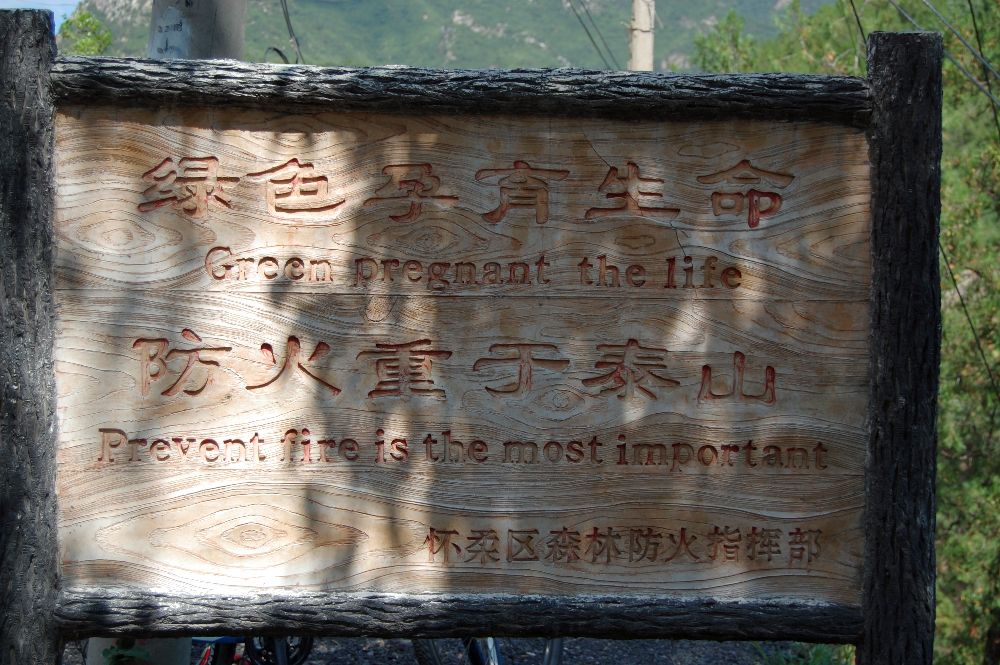 绿色孕育生命
Green pregnant the life
防火重于泰山
Prevent fire is the most important
怀柔区森林防火指挥部